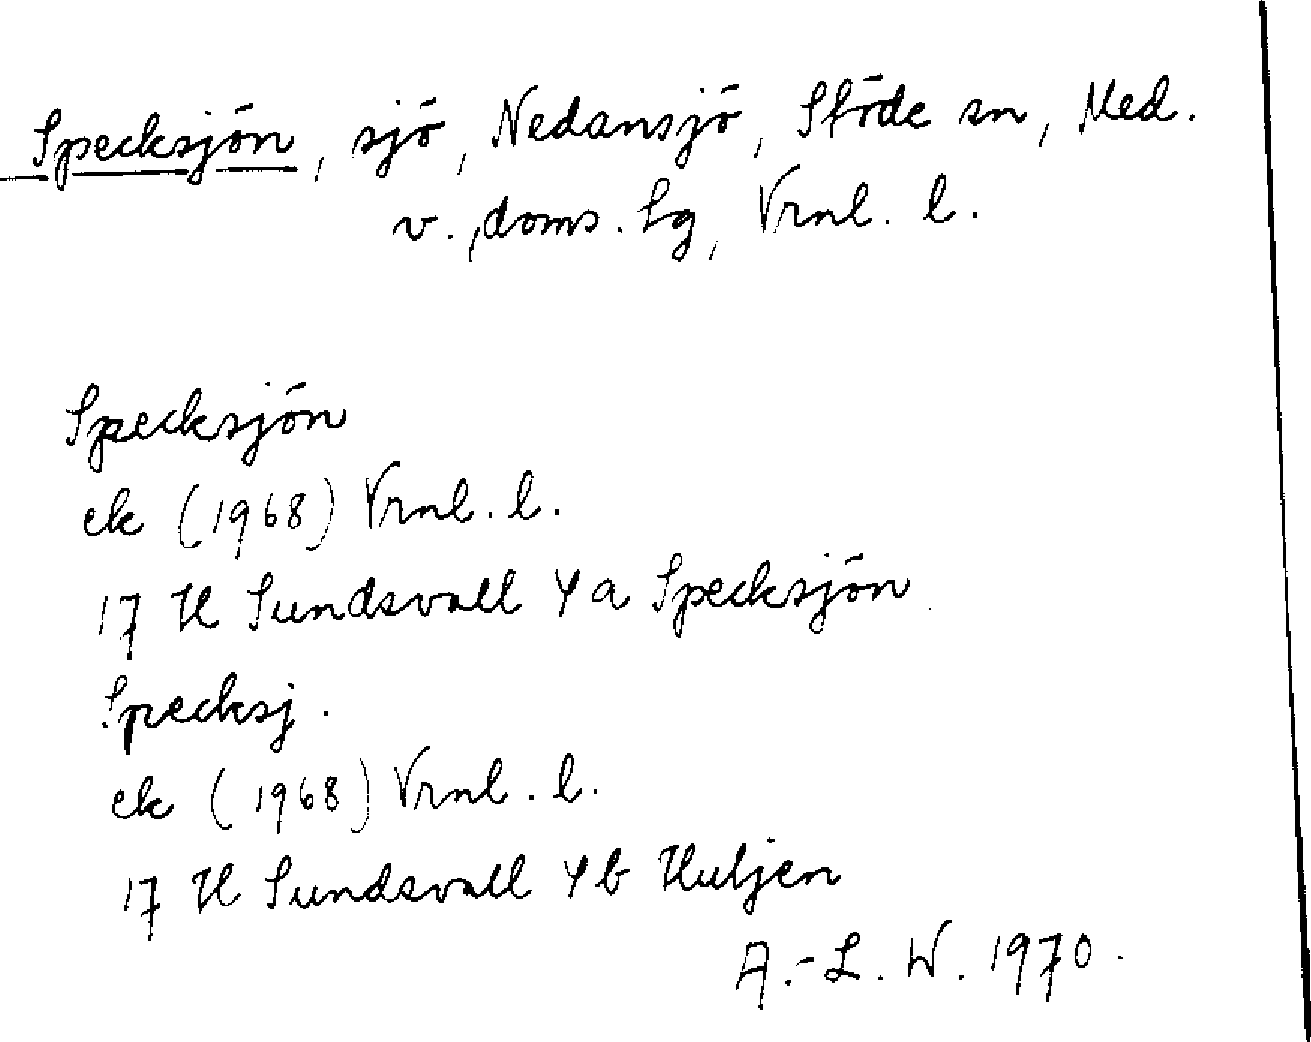 Specksjön, sjö, Nedansjö, Stöde sn, Med.
v., doms. Lg, Vrnl. l.
Specksjön
ek (1968) Vrnl. l.
17 H Sundsvall 4 a Specksjön
Specksj.
ek (1968) Vrnl. l.
17 H Sundsvall 4 b Huljen
A.-L. W. 1970.